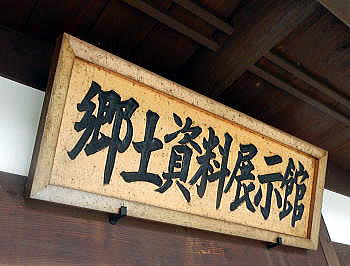 郷土資料展示館